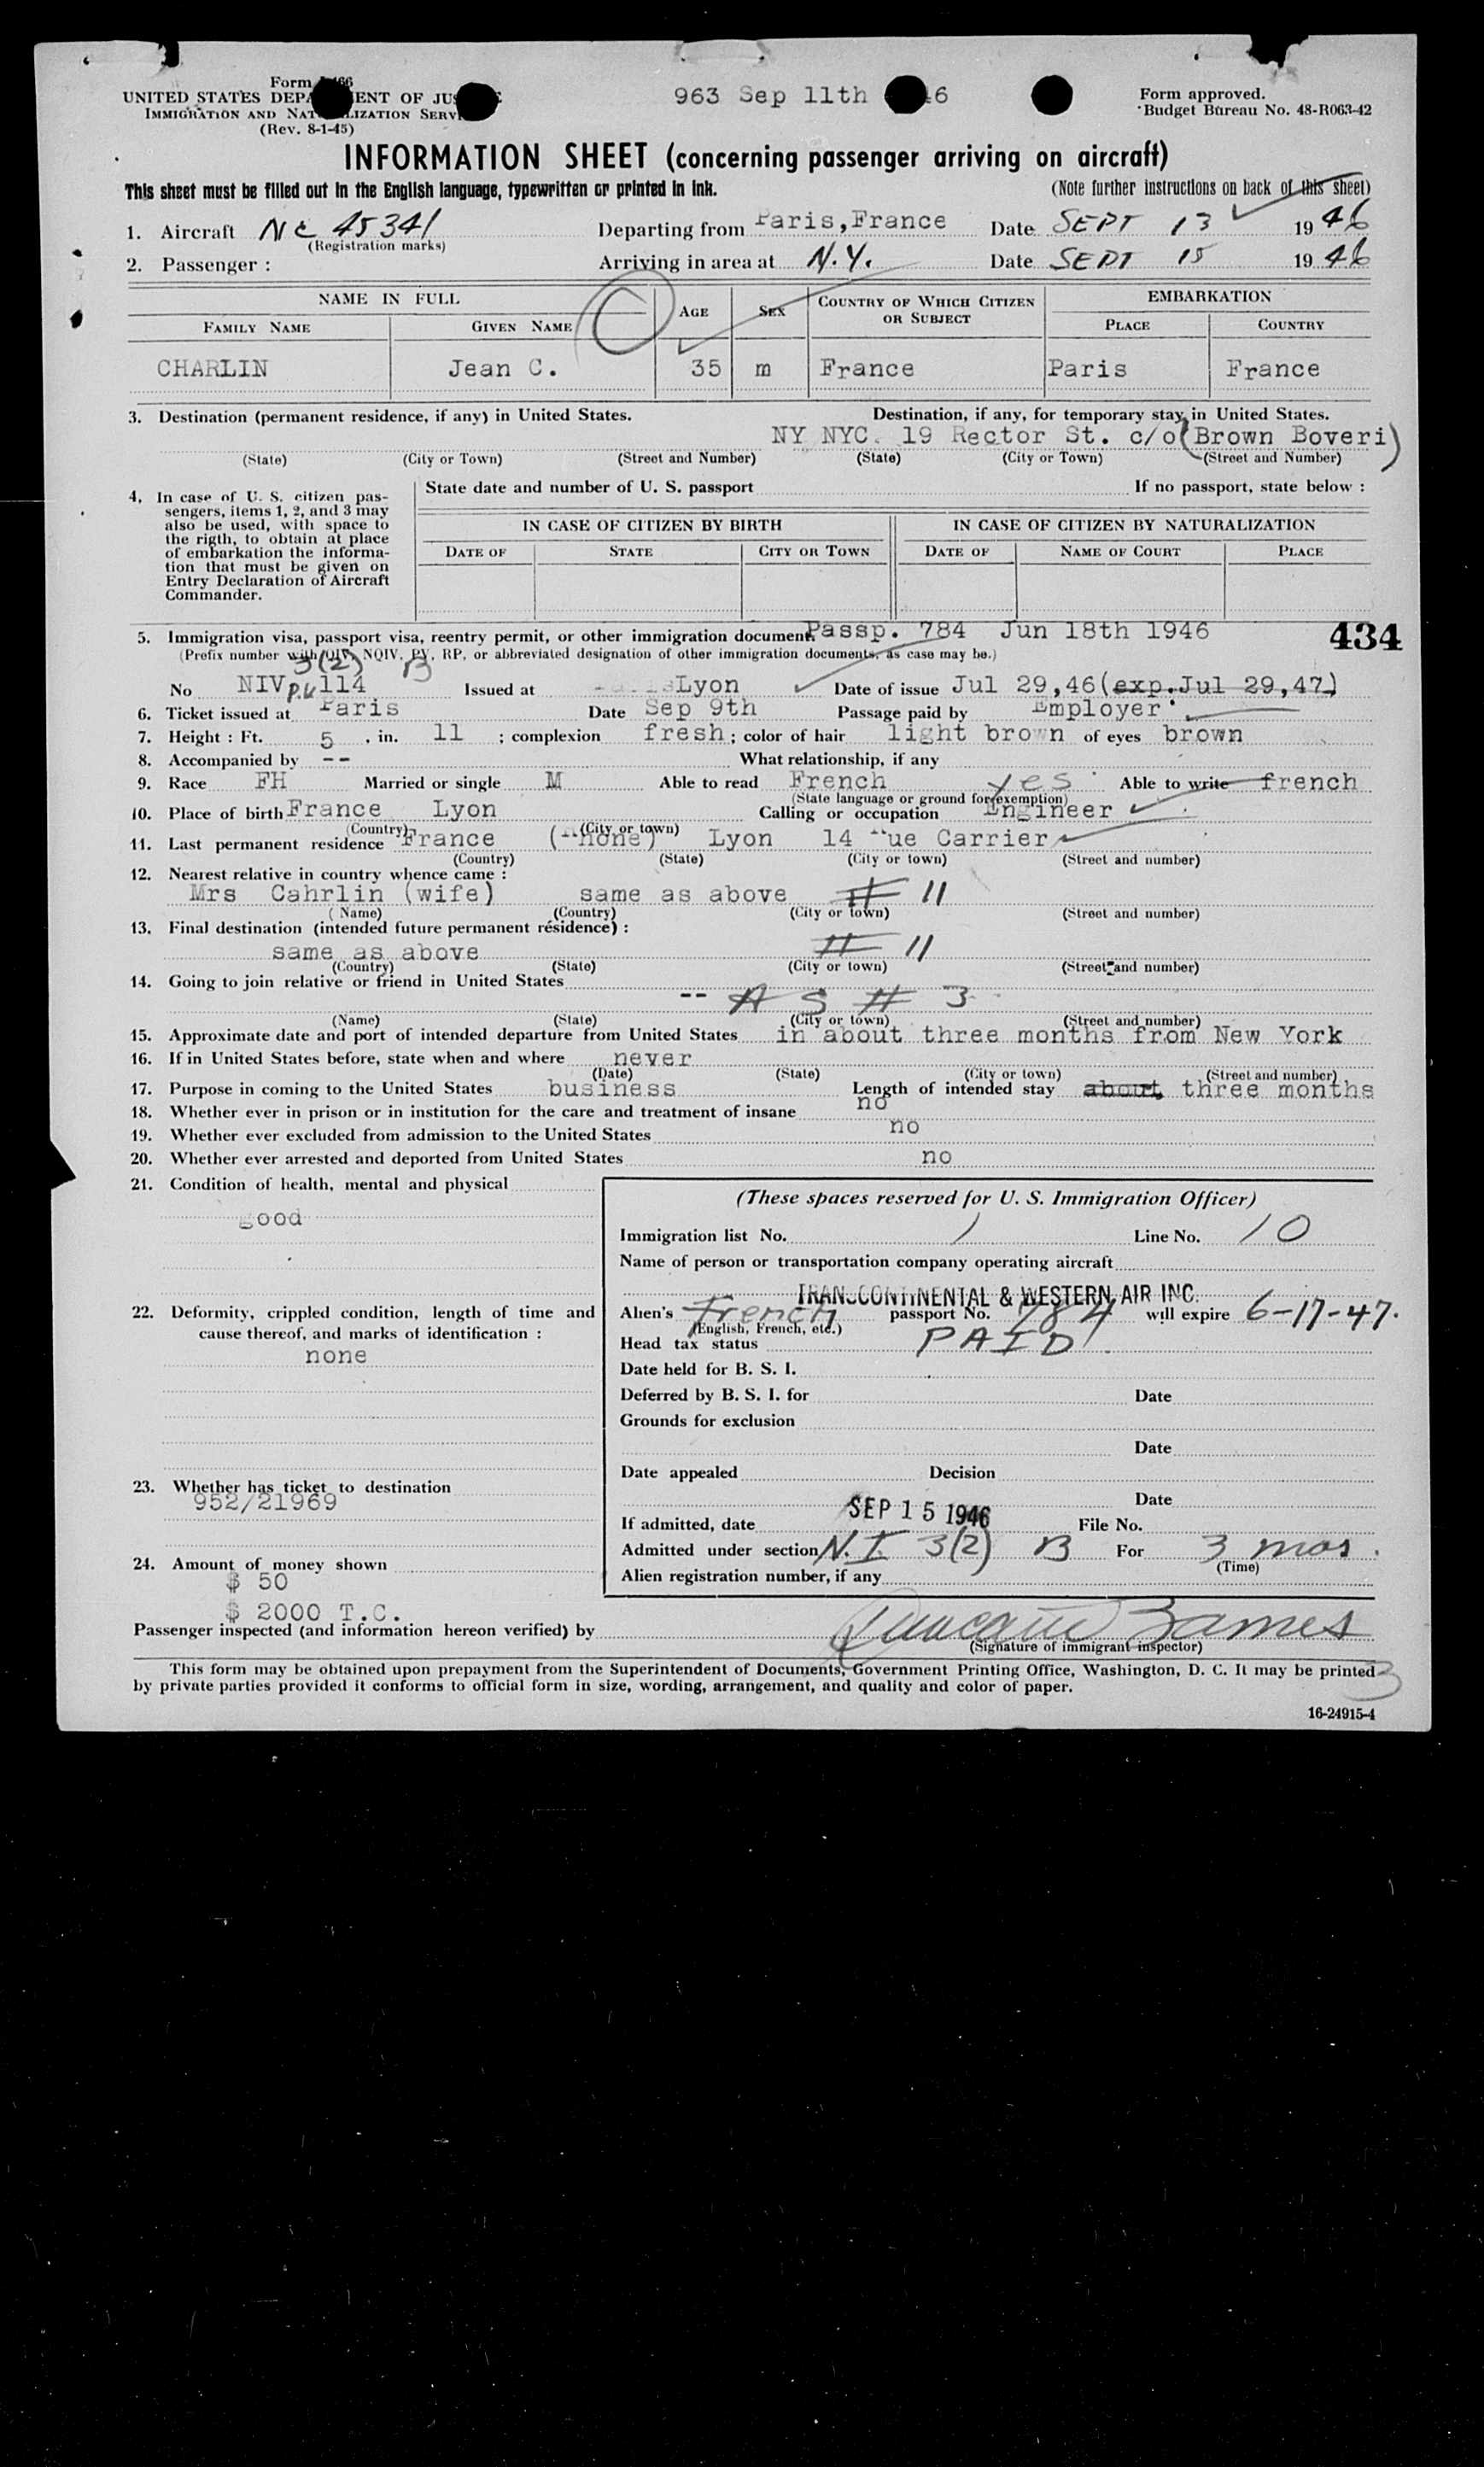 Form
963 Sep 11th 6
Form approved.
UNITED STATES DEPA ENT OF JUS
Budget Bureau No. 48-R063-42
IMMIGRATION AND NAT LIZATION SERV
(Rev. 8-1-45)
INFORMATION SHEET (concerning passenger arriving on aircraft)
This sheet must be filled out in the English language, typewritten or printed in ink. (Note further instructions on back of this sheet)
1. Aircraft NC 45341 Departing from Paris,France Date SEPT 13 1946
(Registration marks)
2. Passenger : Arriving in area at N.Y. Date SEPT 15 1946
NAME IN FULL AGE SEX COUNTRY OF WHICH CITIZEN OR SUBJECT EMBARKATION
FAMILY NAME GIVEN NAME PLACE COUNTRY
C
CHARLIN Jean C. 35 m France Paris France
3. Destination (permanent residence, if any) in United States. Destination, if any, for temporary stay, in United States.
NY NYC. 19 Rector St. c/o (Brown Boveri)
(State) (City or Town) (Street and Number) (State) (City or Town) (Street and Number)
4. In case of U. S. citizen pas-
sengers, items 1, 2, and 3 may
also be used, with space to
the rigth, to obtain at place
of embarkation the informa-
tion that must be given on
Entry Declaration of Aircraft
Commander.
State date and number of U. S. passport If no passport, state below :
IN CASE OF CITIZEN BY BIRTH IN CASE OF CITIZEN BY NATURALIZATION
DATE OF STATE CITY OR TOWN DATE OF NAME OF COURT PLACE
5. Immigration visa, passport visa, reentry permit, or other immigration document. Passp. 784 Jun 18th 1946 434
(Prefix number with QIV, NQIV, PV, RP, or abbreviated designation of other immigration documents, as case may be.)
3(2) B
No NIV P.V 114 Issued at Lyon Date of issue Jul 29,46(exp.Jul 29,47)
6. Ticket issued at Paris Date Sep 9th Passage paid by Employer
7. Height : Ft. 5 , in. 11 ; complexion fresh ; color of hair light brown of eyes brown
8. Accompanied by -- What relationship, if any
9. Race FH Married or single M Able to read French yes Able to write french
(State language or ground for exemption)
10. Place of birth France Lyon Calling or occupation Engineer
(Country) (City or town)
11. Last permanent residence France (Rhone) Lyon 14 Rue Carrier
(Country) (State) (City or town) (Street and number)
12. Nearest relative in country whence came :
Mrs Cahrlin (wife) same as above # 11
(Name) (Country) (City or town) (Street and number)
13. Final destination (intended future permanent résidence) :
same as above # 11
(Country) (State) (City or town) (Street and number)
14. Going to join relative or friend in United States
-- A S # 3
(Name) (State) (City or town) (Street and number)
15. Approximate date and port of intended departure from United States in about three months from New York
16. If in United States before, state when and where never
(Date) (State) (City or town) (Street and number)
17. Purpose in coming to the United States business Length of intended stay about three months
18. Whether ever in prison or in institution for the care and treatment of insane no
19. Whether ever excluded from admission to the United States no
20. Whether ever arrested and deported from United States no
21. Condition of health, mental and physical
good
22. Deformity, crippled condition, length of time and
cause thereof, and marks of identification :
none
23. Whether has ticket to destination
952/21969
24. Amount of money shown
$ 50
$ 2000 T.C.
(These spaces reserved for U. S. Immigration Officer)
Immigration list No. 1 Line No. 10
Name of person or transportation company operating aircraft
TRANSCONTINENTAL & WESTERN AIR INC.
Alien's French passport No. 784 will expire 6-17-47.
(English, French, etc.)
Head tax status PAID
Date held for B. S. I.
Deferred by B. S. I. for Date
Grounds for exclusion
Date
Date appealed Decision
Date
If admitted, date SEP 15 1946 File No.
Admitted under section N.I. 3(2) B For 3 mos.
(Time)
Alien registration number, if any
Passenger inspected (and information hereon verified) by
(Signature of immigrant inspector)
This form may be obtained upon prepayment from the Superintendent of Documents, Government Printing Office, Washington, D. C. It may be printed
by private parties provided it conforms to official form in size, wording, arrangement, and quality and color of paper.
3
16-24915-4